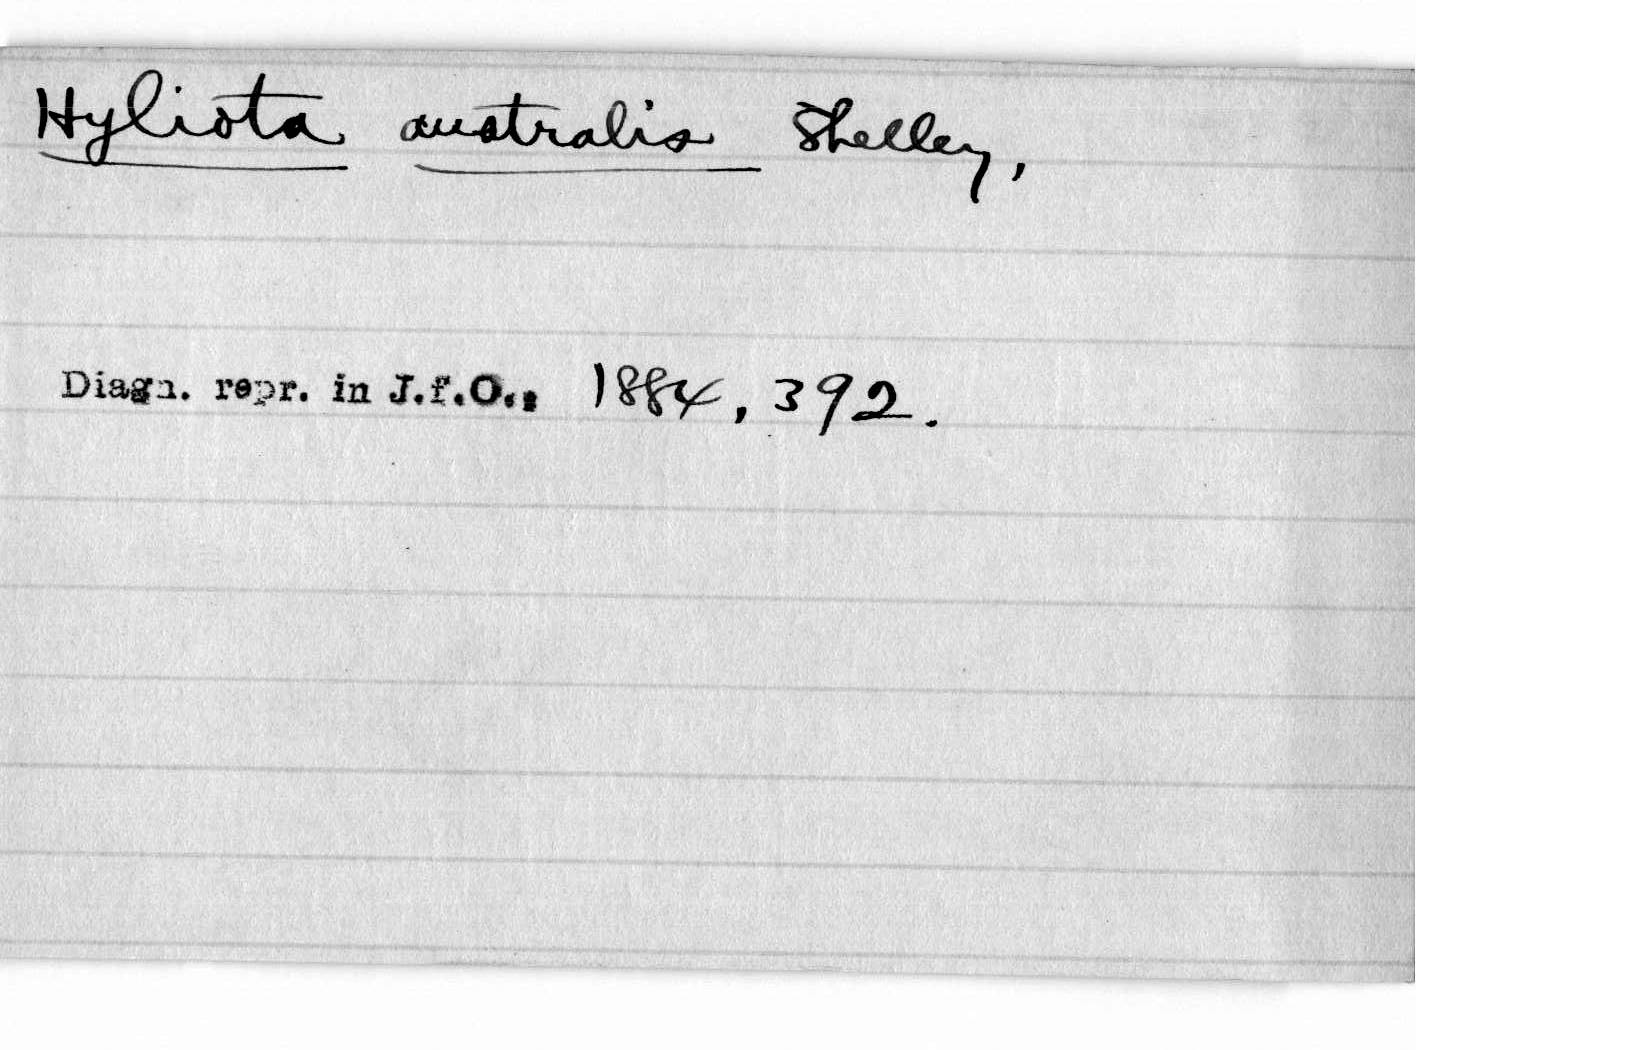 Hyliota australis Shelley,
Diagn. repr. in J.f.O., 1884, 392.